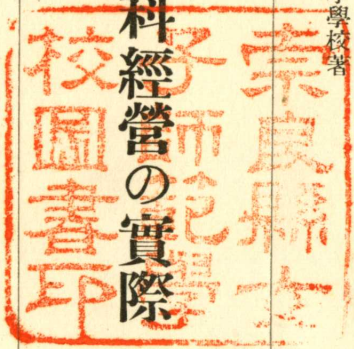 學校著
科經營の實際
奈良縣女
子師範學
校圖書印